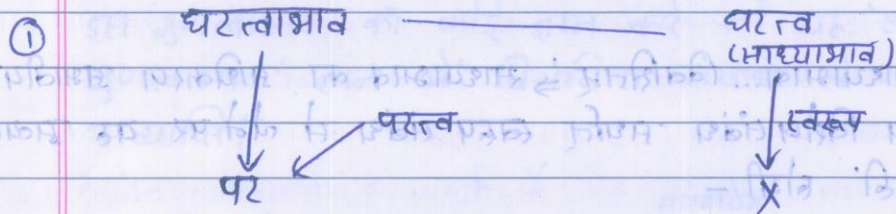 ① घटत्वाभाव घटत्व
(साध्याभाव)
पटत्व स्वरूप
पट X